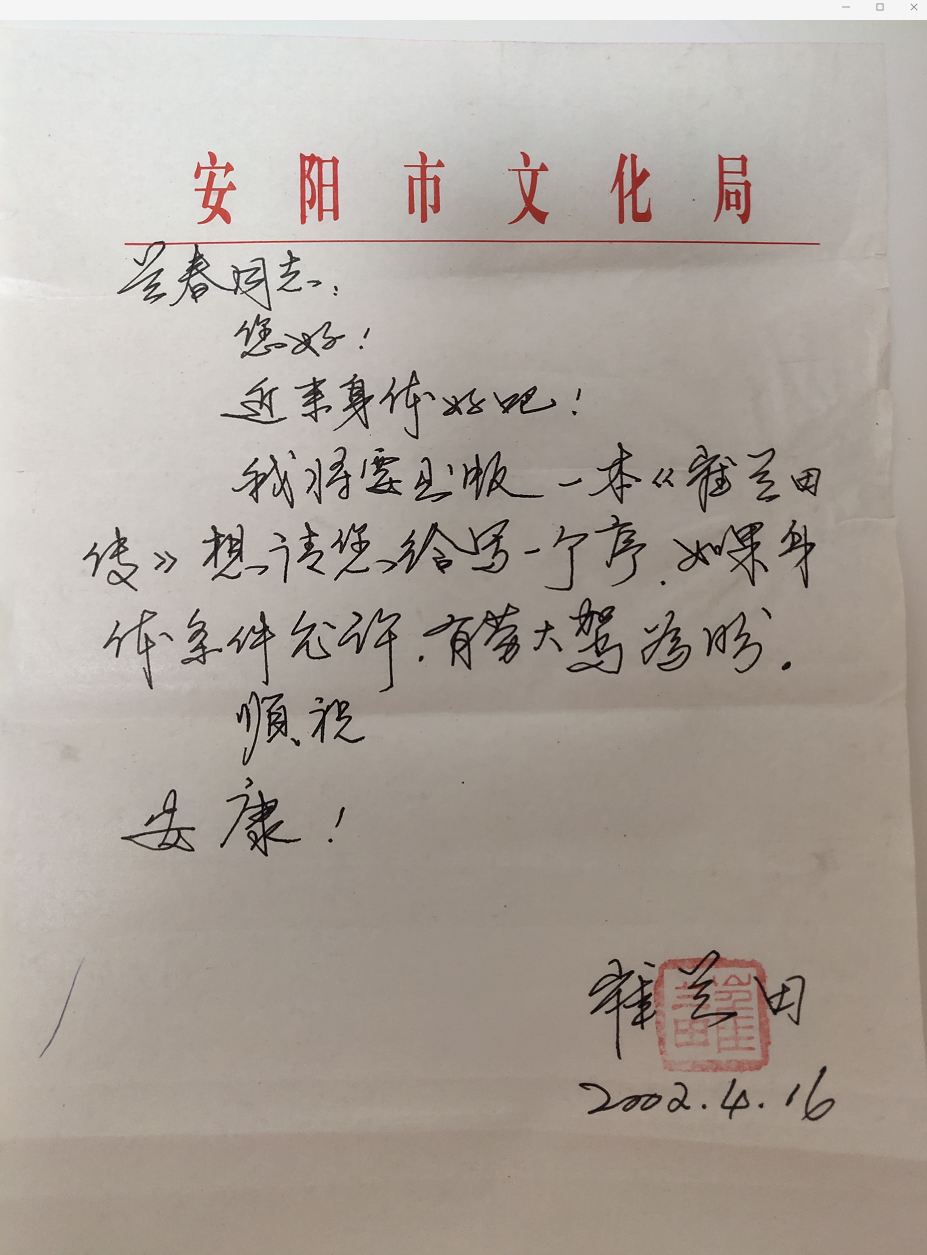 安阳市文化局
兰春同志:
您好!
近来身体好吧!
我将要出版一本《崔兰田
传》想请您给写一个序.如果身
体条件允许.有劳大驾為盼.
順祝
安康!
崔兰田
崔兰田
2002.4.16